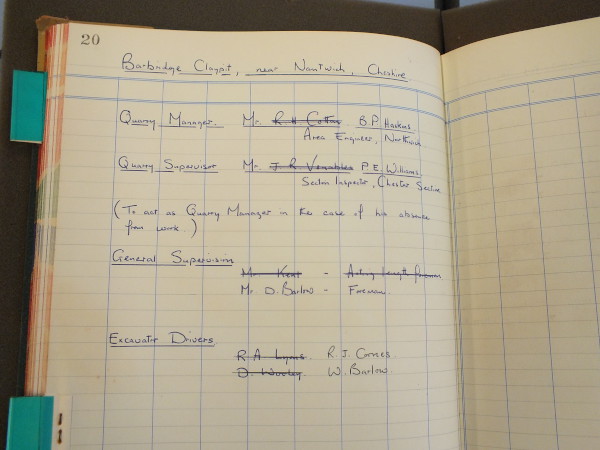 20
Barbridge Claypit, near Nantwich, Cheshire
Quarry Manager. Mr. R H Cotton B.P. Haskins
Area Engineer, Northwich
Quarry Supervisor Mr. J. R. Venables P.E. Williams
Section Inspector, Chester Section
(To act as Quarry Manager in the case of his absence
from work.)
General Supervision
Mr. Kent - Acting length foreman
Mr D. Barlow - Foreman.
Excavator Drivers
R A Lyons R. J. Cornes
D. Wooley. W. Barlow.